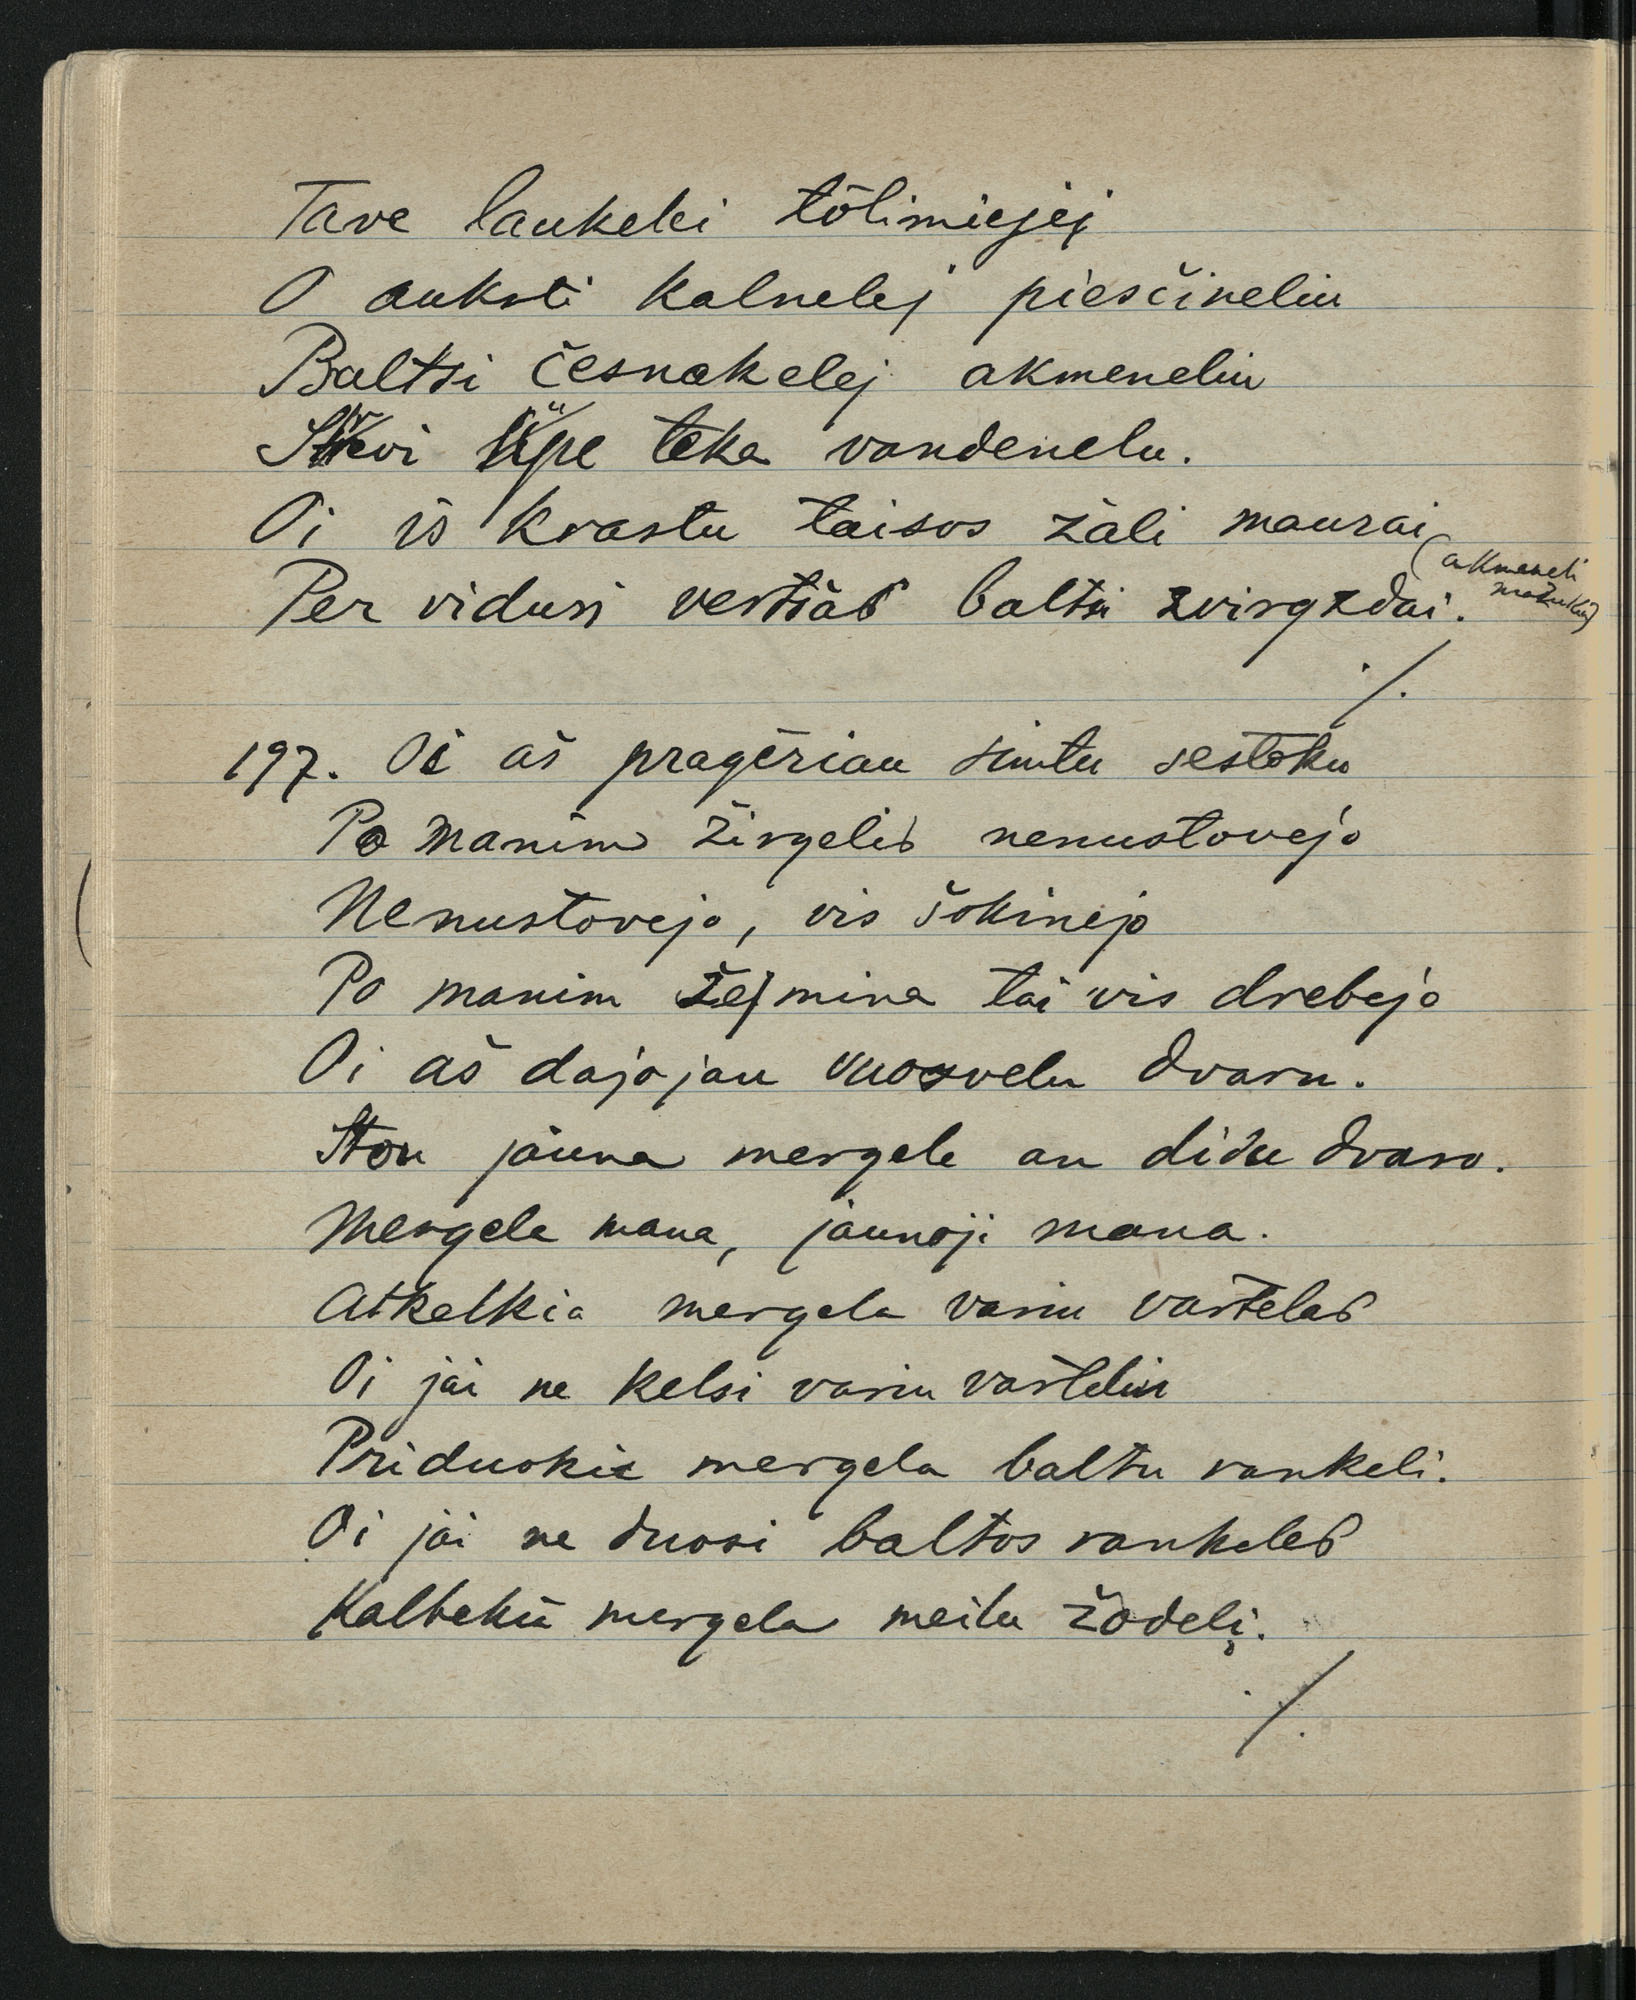 Tave laukelei tōlimiejej
O auksti kalnelej piesčineliu
Baltsi česnakelej akmeneliu
teka vandenelu.
Oi iš krastu taisos žali maurai
(akmeneli mažuki)
Per vidurį vertiās baltsi zvirgzdai.
./.
197. Oi aš pragēriau simtu sestoku
Po manim žirgelis nenustovejo
Nenustovejo, vis šokinejo
Po manim žejmina tai vis drebejo
Oi aš dajojau uuozvelu dvaru.
Ston jauna mergele an didu dvaro.
Mergele mana, jaunoji mana.
Atkelkia mergela variu vartelas
Oi jai ne kelsi variu varteliu
Priduokie mergela baltu rankeli.
Oi jai ne duosi baltos rankeles
Kalbekii mergela meilu žodelį.
./.